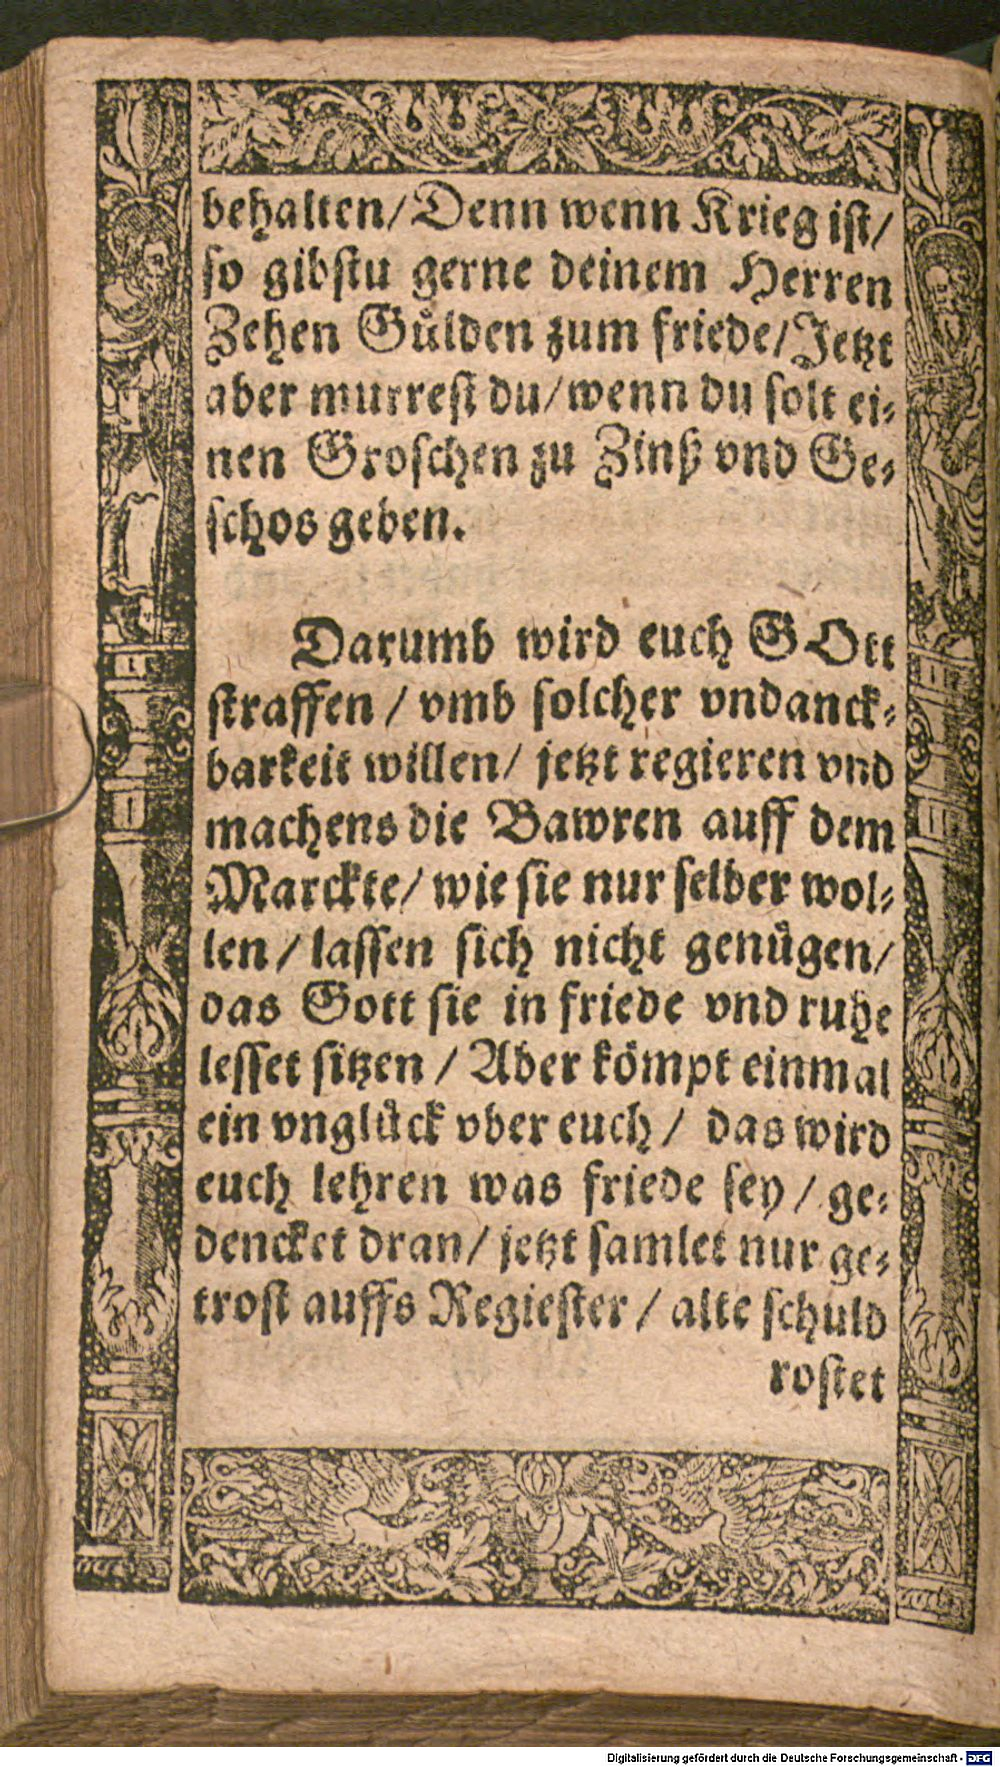 behalten/ Denn wenn Krieg ist/
so gibstu gerne deinem Herren
Zehen Gůlden zum friede/ Jetzt
aber murrest du/ wenn du solt ei-
nen Groschen zu Zinß vnd Ge-
schos geben.
Darumb wird euch GOtt
straffen / vmb solcher vndanck-
barkeit willen/ jetzt regieren vnd
machens die Bawren auff dem
Marckte/ wie sie nur selber wol-
len / lassen sich nicht genůgen/
das Gott sie in friede vnd ruhe
lesset sitzen / Aber kömpt einmal
ein vnglůck vber euch / das wird
euch lehren was friede sey / ge-
dencket dran/ jetzt samlet nur ge-
trost auffs Regiester / alte schuld
rostet
Digitalisierung gefördert durch die Deutsche Forschungsgemeinschaft - DFG